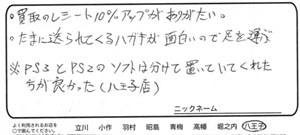 ・買取のレシート10%アップがありがたい。
・たまに送られてくるハガキが面白いので足を運ぶ
※PS3とPS2のソフトは分けて置いていてくれた
方が良かった(八王子店)
ニックネーム
よく利用されるお店を
○で囲んでください。 立川 小作 羽村 昭島 青梅 高幡 堀之内 八王子